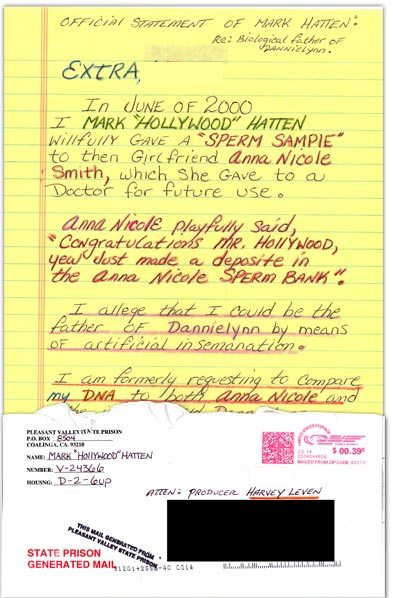 OFFICIAL STATEMENT OF MARK HATTEN:
Re: Biological Father of
DANNIELYNN.
EXTRA,
In JUNE OF 2000
I MARK "HOLLYWOOD" HATTEN
willfully GAVE A "SPERM SAMPlE"
to then Girlfriend Anna Nicole
Smith, which She GAVE to a
Doctor for future use.
Anna Nicole playfully said,
"Congratulations MR. HOLLYWOOD,
yew Just made a deposite in
the Anna Nicole SPERM BANK".
I allege that I could be the
father OF Dannielynn by means
OF artificial insemanation.
I am formerly requesting to compare
my DNA to both Anna Nicole and
PLEASANT VALLEY STATE PRISON
P.O. BOX 8504
COALINGA, CA. 93210
NAME: MARK "HOllYWOOD" HATTEN
NUMBER: V-24366
HOUSNG: D-2-6up
$ 00.39
MAILED FROM ZIP CODE
ATTEN: PRODUCER HARVEY LEVEN
THIS MAIL GENERATED FROM
PLEASANT VALLEY STATE PRISON
STATE PRISON
GENERATED MAIL